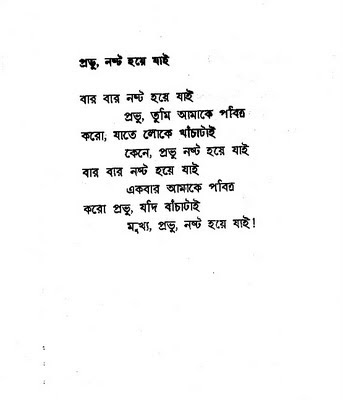 প্রভু, নষ্ট হয়ে যাই
বার বার নষ্ট হয়ে যাই
প্রভু, তুমি আমাকে পবিত্র
করো, যাতে লোকে খাঁচাটাই
কেনে, প্রভু নষ্ট হয়ে যাই
বার বার নষ্ট হয়ে যাই
একবার আমাকে পবিত্র
করো প্রভু, যদি বাঁচাটাই
মুখ্য, প্রভু, নষ্ট হয়ে যাই!